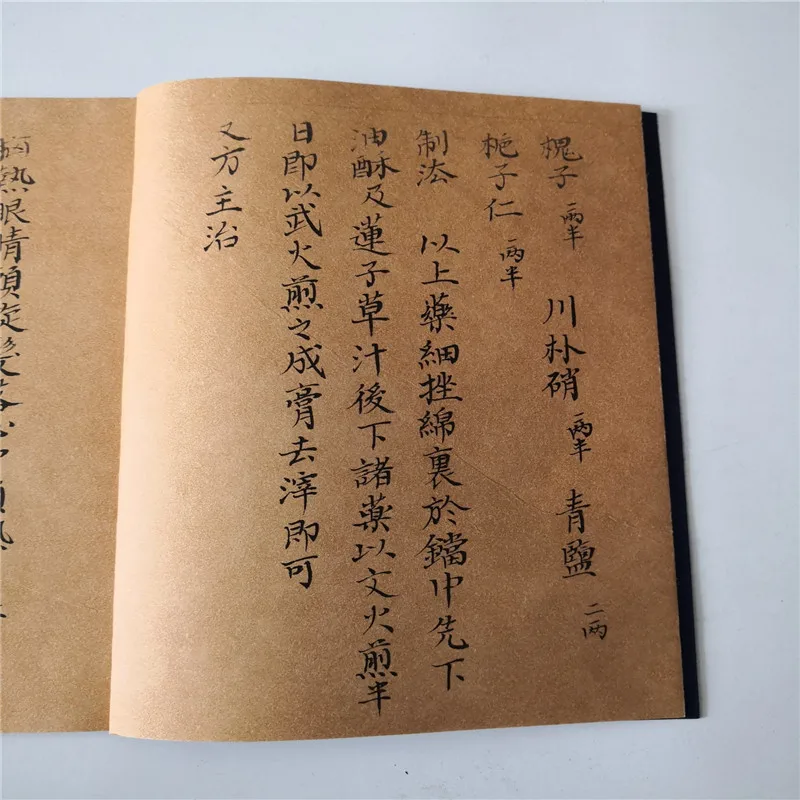 槐子 一两半 川朴硝 一两半 青鹽 二两
栀子仁 一两半
制法 以上藥細挫綿裏於鐺中先下
油酥及蓮子草汁後下諸藥以文火煎半
日即以武火煎之成膏去滓即可
又方主治
熱眼睛